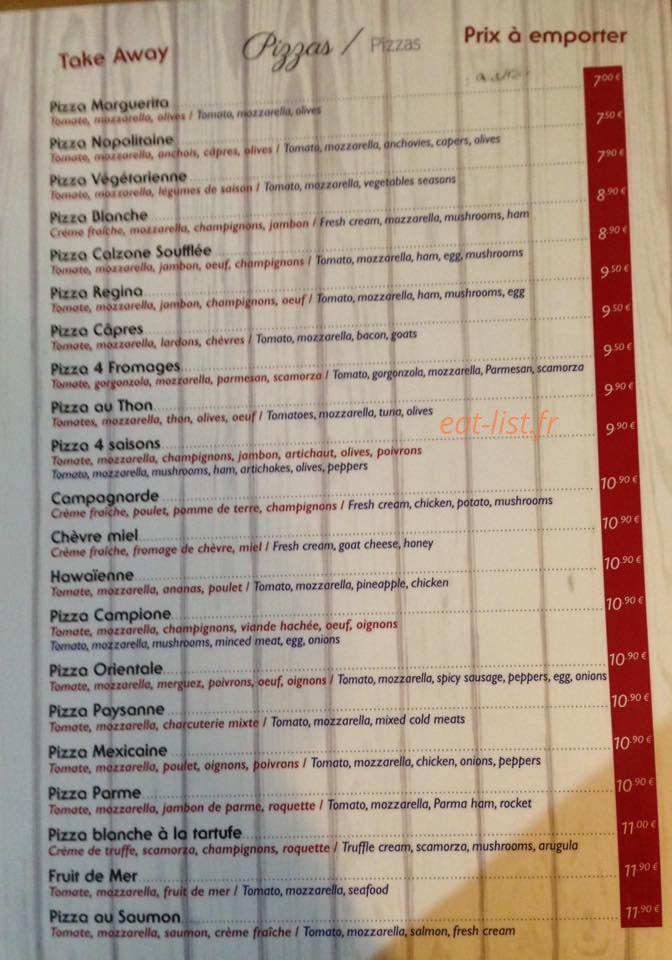 Take Away Pizzas / Pizzas Prix à emporter
Pizza Marguerita 7.00 €
Tomate, mozzarella, olives / Tomato, mozzarella, olives
Pizza Napolitaine 7.50 €
Tomate, mozzarella, anchois, câpres, olives / Tomato, mozzarella, anchovies, capers, olives
Pizza Végétarienne 7.90 €
Tomate, mozzarella, légumes de saison / Tomato, mozzarella, vegetables seasons
Pizza Blanche 8.90 €
Crème fraîche, mozzarella, champignons, jambon / Fresh cream, mozzarella, mushrooms, ham
Pizza Calzone Soufflée 8.90 €
Tomate, mozzarella, jambon, oeuf, champignons / Tomato, mozzarella, ham, egg, mushrooms
Pizza Regina 9.50 €
Tomate, mozzarella, jambon, champignons, oeuf / Tomato, mozzarella, ham, mushrooms, egg
Pizza Câpres 9.50 €
Tomate, mozzarella, lardons, chèvres / Tomato, mozzarella, bacon, goats
Pizza 4 Fromages 9.50 €
Tomate, gorgonzola, mozzarella, parmesan, scamorza / Tomato, gorgonzola, mozzarella, Parmesan, scamorza
Pizza au Thon 9.90 €
Tomates, mozzarella, thon, olives, oeuf / Tomatoes, mozzarella, tuna, olives
eat-list.fr
Pizza 4 saisons 9.90 €
Tomate, mozzarella, champignons, jambon, artichaut, olives, poivrons
Tomato, mozzarella, mushrooms, ham, artichokes, olives, peppers
Campagnarde 10.90 €
Crème fraîche, poulet, pomme de terre, champignons / Fresh cream, chicken, potato, mushrooms
Chèvre miel 10.90 €
Crème fraîche, fromage de chèvre, miel / Fresh cream, goat cheese, honey
Hawaïenne 10.90 €
Tomate, mozzarella, ananas, poulet / Tomato, mozzarella, pineapple, chicken
Pizza Campione 10.90 €
Tomate, mozzarella, champignons, viande hachée, oeuf, oignons
Tomato, mozzarella, mushrooms, minced meat, egg, onions
Pizza Orientale 10.90 €
Tomate, mozzarella, merguez, poivrons, oeuf, oignons / Tomato, mozzarella, spicy sausage, peppers, egg, onions
Pizza Paysanne 10.90 €
Tomate, mozzarella, charcuterie mixte / Tomato, mozzarella, mixed cold meats
Pizza Mexicaine 10.90 €
Tomate, mozzarella, poulet, oignons, poivrons / Tomato, mozzarella, chicken, onions, peppers
Pizza Parme 10.90 €
Tomate, mozzarella, jambon de parme, roquette / Tomato, mozzarella, Parma ham, rocket
Pizza blanche à la tartufe 11.00 €
Crème de truffe, scamorza, champignons, roquette / Truffle cream, scamorza, mushrooms, arugula
Fruit de Mer 11.90 €
Tomate, mozzarella, fruit de mer / Tomato, mozzarella, seafood
Pizza au Saumon 11.90 €
Tomate, mozzarella, saumon, crème fraîche / Tomato, mozzarella, salmon, fresh cream